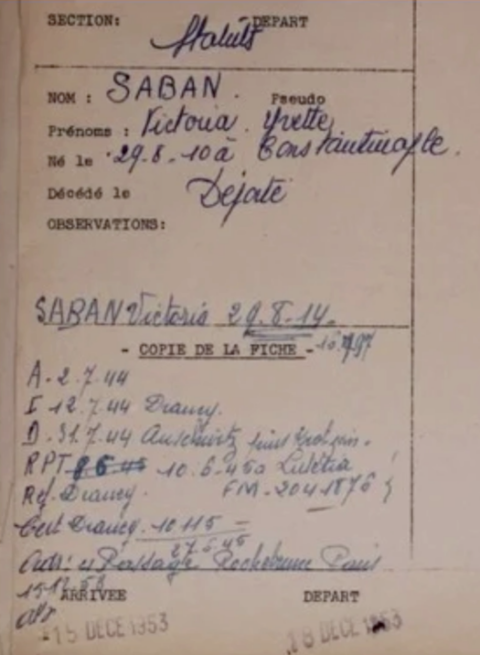 SECTION: DEPART
Statuts
NOM : SABAN. Pseudo
Prénoms : Victoria. Yvette
Né le 29-8-10 à Constantinople.
Décédé le Déjaté
OBSERVATIONS:
SABAN Victoria 29.8-14-
- COPIE DE LA FICHE -
A-2.7.44
I 12.7.44 Drancy.
D-31.7.44 Auschwitz
RPT 10.6.45 a Lutétia
Ref. Drancy. FM-2041876
Cert Drancy. 10115 -
27.6.45
Passage Rochebrune Paris
15-12-53
ARRIVEE DEPART
15 DECE 1953 18 DECE 1953